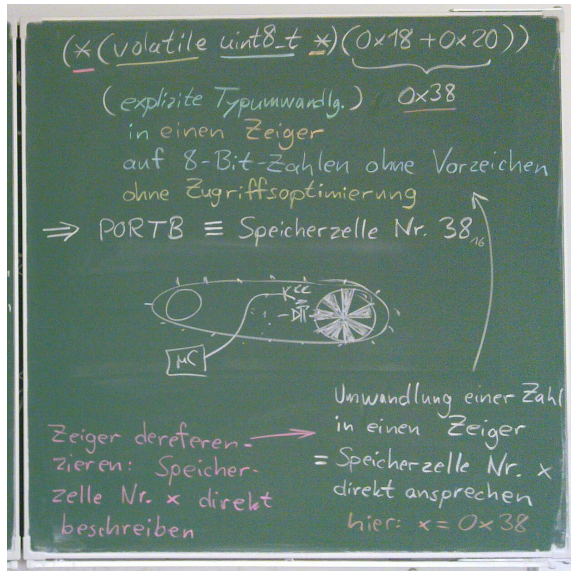 (*(volatile uint8_t *)(0x18 + 0x20))
(explizite Typumwandlg.) 0x38
in einen Zeiger
auf 8-Bit-Zahlen ohne Vorzeichen
ohne Zugriffsoptimierung
⇒ PORTB ≡ Speicherzelle Nr. 38₁₆
µC
Zeiger dereferen-
zieren: Speicher-
zelle Nr. x direkt
beschreiben
Umwandlung einer Zahl
in einen Zeiger
= Speicherzelle Nr. x
direkt ansprechen
hier: x = 0x38